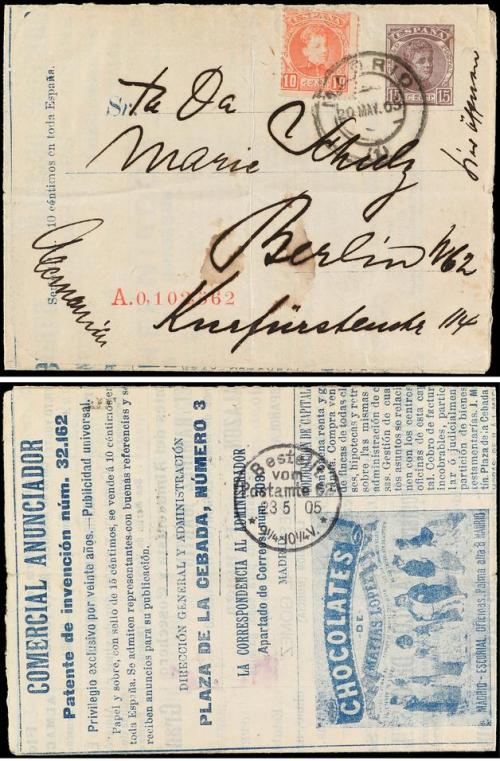 ESPAÑA
10 CENT 10
ESPAÑA
15 CENT 15
20 MAY. 05
(1)
Srta Da
Marie Schulz
Berlin W62
Kurfürstenstr 114
A.0,102,362
10 céntimos en toda España.
COMERCIAL ANUNCIADOR
Patente de invención núm. 32.162
Privilegio exclusivo por veinte años.—Publicidad universal.
Papel y sobre, con sello de 15 céntimos, se vende á 10 céntimos en
toda España. Se admiten representantes con buenas referencias y se
reciben anuncios para su publicación.
DIRECCIÓN GENERAL Y ADMINISTRACIÓN
PLAZA DE LA CEBADA, NÚMERO 3
LA CORRESPONDENCIA AL ADMINISTRADOR
Apartado de Correos, núm.
MADRID
Bestellt
vom
Postamte 62
23 5 05
DE CAPITAL
renta y
Compra ven
de fincas de todas cl
ses, hipotecas y retr
sobre las mismas
administración de
sas. Gestión de cua
tos asuntos se relaci
nen con los centros
oficinas de esta cap
tal. Cobro de factur
incobrables, partic
lar ó judicialmen
partición de bienes
testamentarías. J. M
tín. Plaza de la Cebada
CHOCOLATES
DE
MATIAS LOPEZ
MADRID - ESCORIAL. Oficinas. Palma alta 8 MADRID